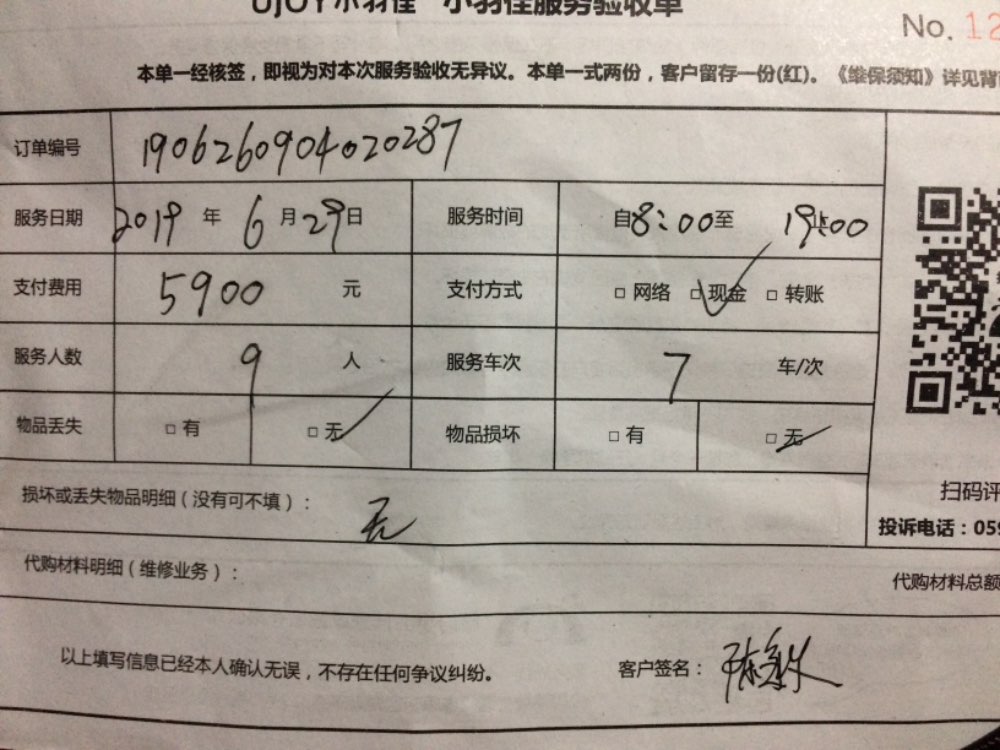 UJOY小羽佳 小羽佳服务验收单
No. 12
本单一经核签，即视为对本次服务验收无异议。本单一式两份，客户留存一份(红)。《维保须知》详见背
订单编号 1906260904020287
服务日期 2019 年 6 月 29 日 服务时间 自 8:00 至 19:00
支付费用 5900 元 支付方式 □ 网络 □ 现金 ✓ □ 转账
服务人数 9 人 服务车次 7 车/次
物品丢失 □ 有 □ 无 ✓ 物品损坏 □ 有 □ 无 ✓
损坏或丢失物品明细（没有可不填）： 无
扫码评
投诉电话：059
代购材料明细（维修业务）：
代购材料总额
以上填写信息已经本人确认无误，不存在任何争议纠纷。 客户签名：